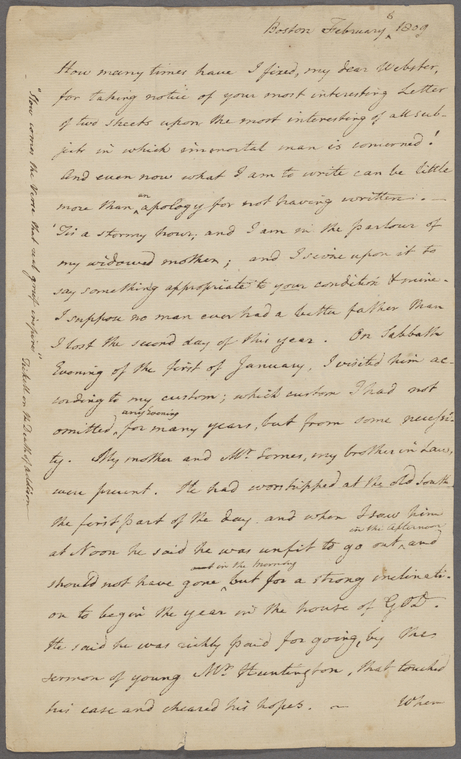 Boston February 6 1809
How many times have I fixed, my dear Webster,
for taking notice of your most interesting Letter
of two sheets upon the most interesting of all sub-
jects in which immortal man is concerned!
And even now what I am to write can be little
more than an apology for not having written. —
'Tis a stormy hour; and I am in the parlour of
my widowed mother; and I seize upon it to
say something appropriate to your condition & mine.
I suppose no man ever had a better father than
I lost the second day of this year. On Sabbath
Evening of the first of January, I visited him ac-
cording to my custom; which custom I had not
omitted, any evening for many years, but from some necessi-
ty. My mother and Mr. Eomes, my brother in Law,
were present. He had worshipped at the old South
the first part of the day and when I saw him
at Noon he said he was unfit to go out in the afternoon, and
should not have gone in the morning but for a strong inclinati-
on to begin the year in the house of GOD.
He said he was richly paid for going, by the
sermon of young Mr. Huntington, that touched
his case and cheared his hopes. — When
"Slow comes the Verse that real grief inspires" Tickell on the Death of Addison